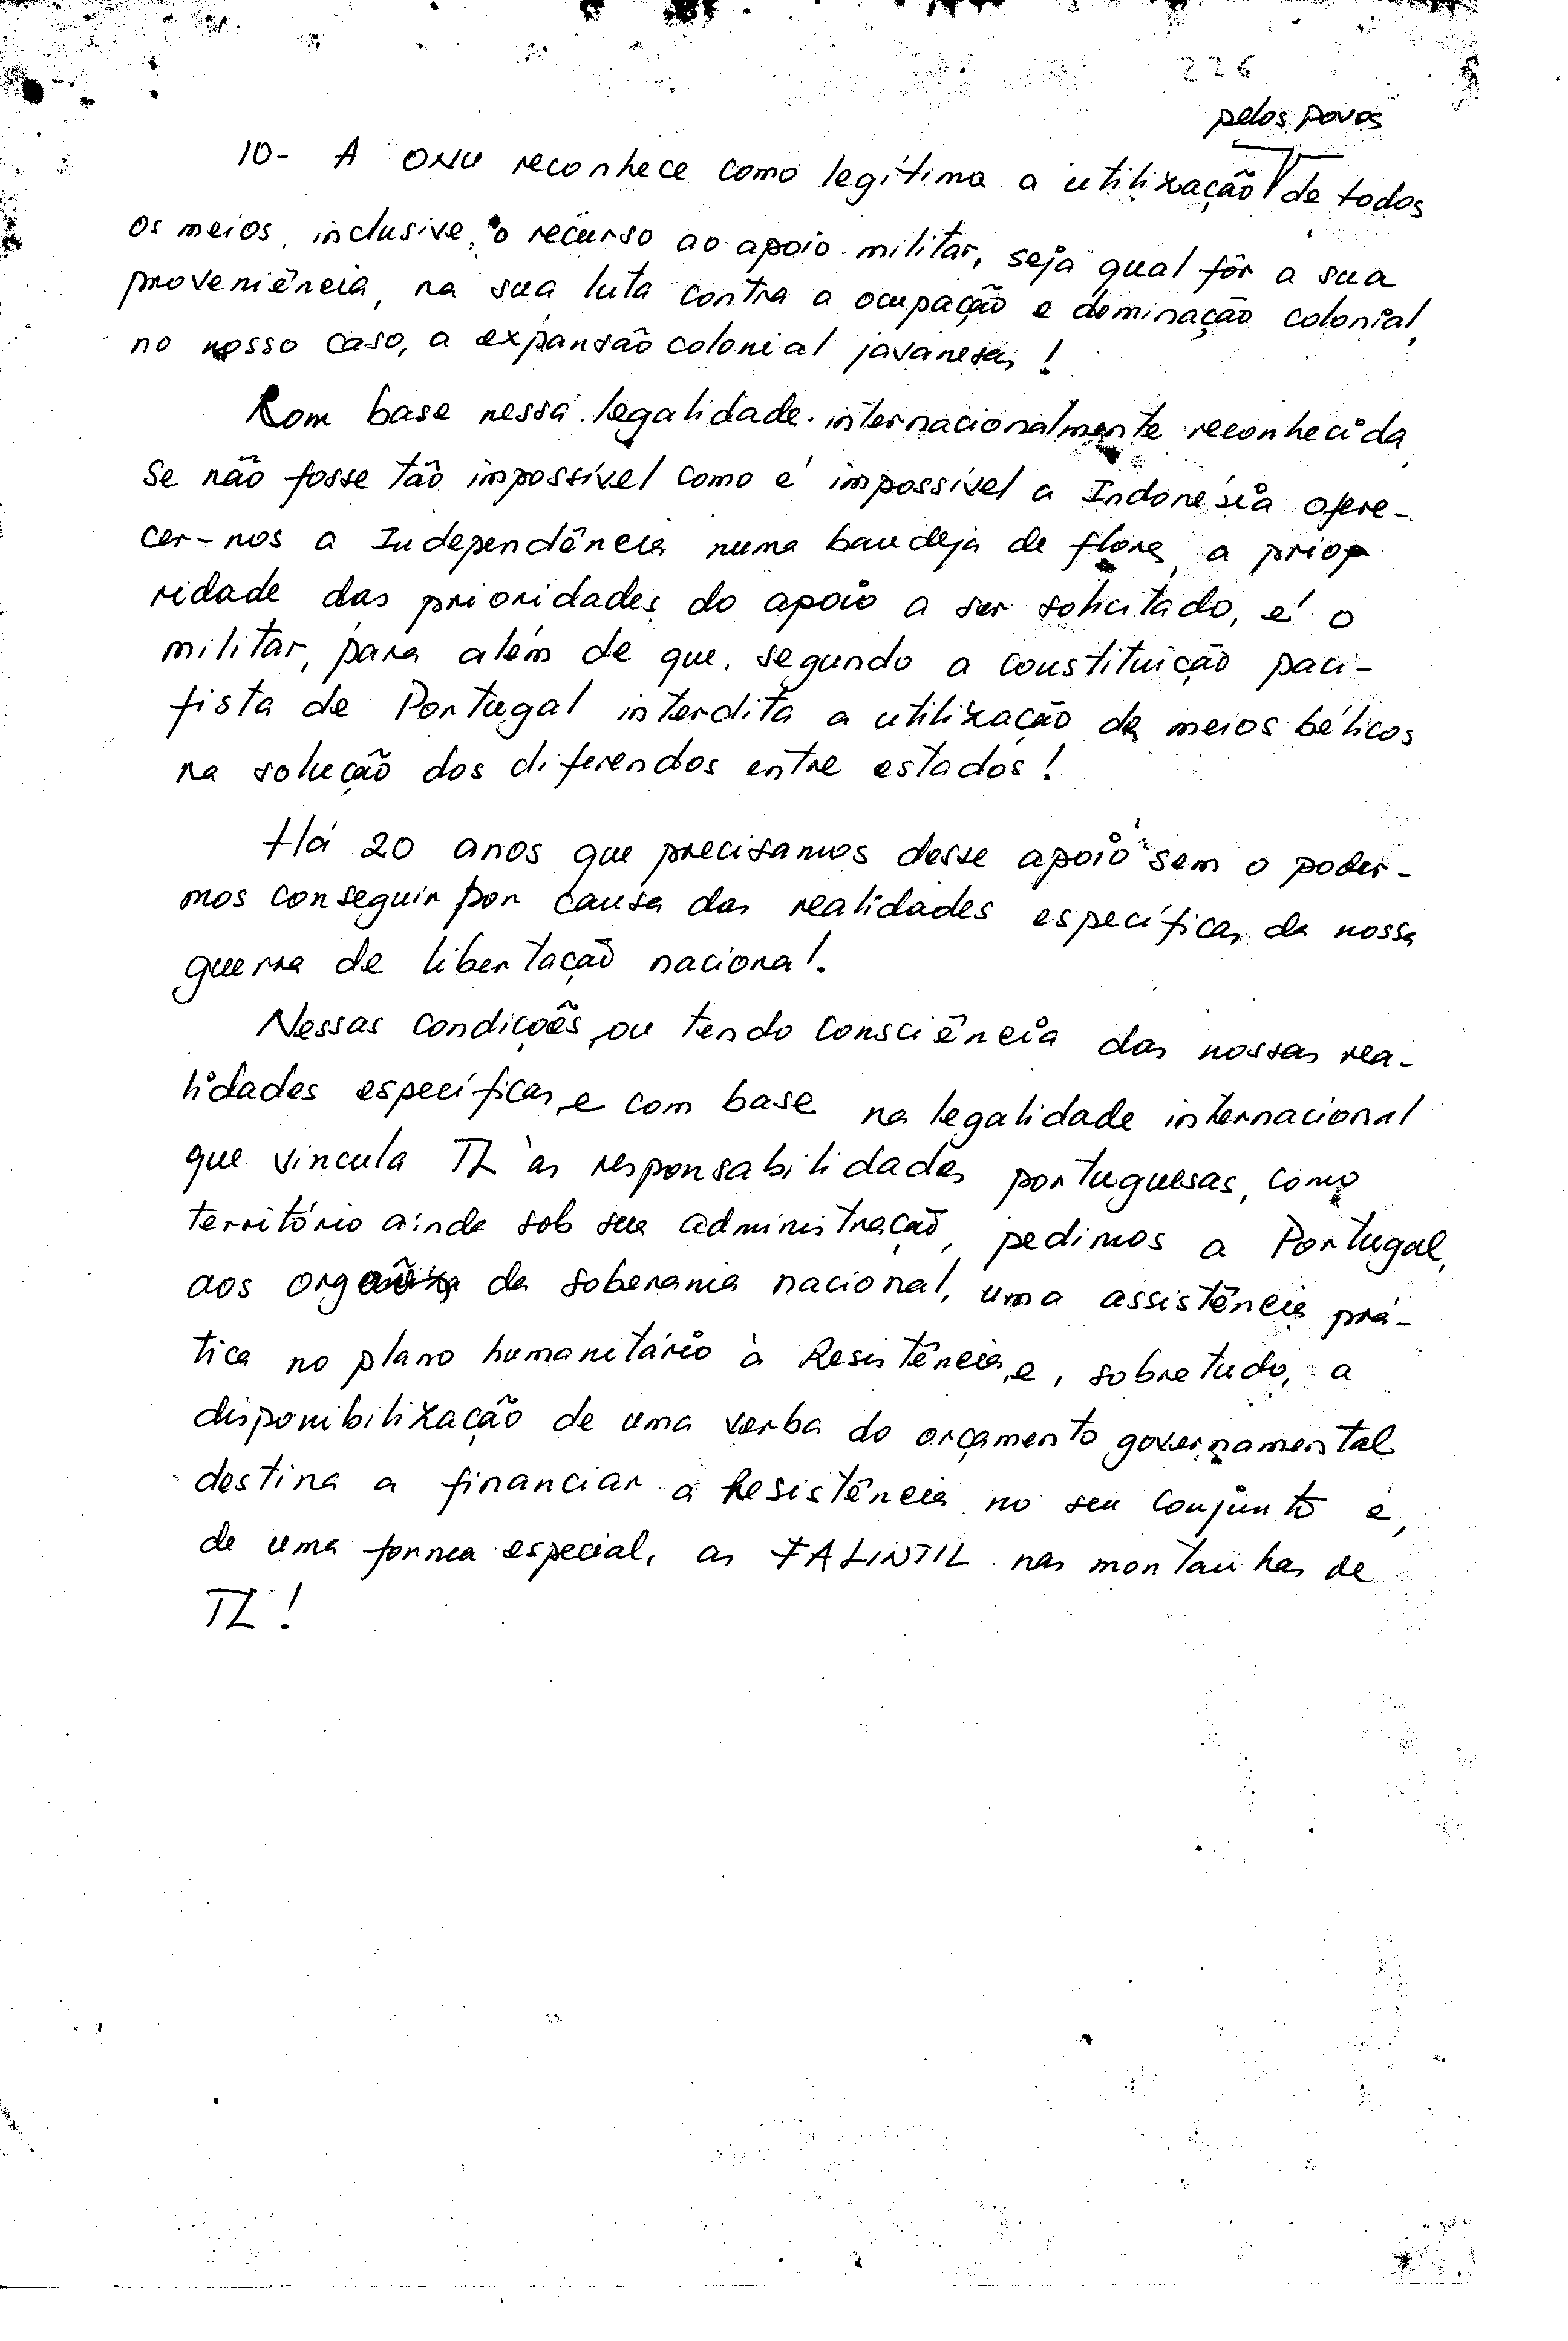 226
pelos povos
10- A ONU reconhece como legítima a utilização de todos
os meios, inclusive, o recurso ao apoio militar, seja qual fôr a sua
proveniência, na sua luta contra a ocupação e dominação colonial,
no nosso caso, a expansão colonial javanesa!
Com base nessa legalidade internacionalmente reconhecida,
se não fosse tão impossível como é impossível a Indonésia ofere-
cer-nos a Independência numa bandeja de flores, a prio
ridade das prioridades do apoio a ser solicitado, é o
militar, para além de que, segundo a constituição paci-
fista de Portugal interdita a utilização de meios bélicos
na solução dos diferendos entre estados!
Há 20 anos que precisamos desse apoio sem o poder-
mos conseguir por causa das realidades específicas da nossa
guerra de libertação nacional.
Nessas condições, ou tendo consciência das nossas rea-
lidades específicas, e com base na legalidade internacional
que vincula TL às responsabilidades portuguesas, como
território ainda sob sua administração, pedimos a Portugal,
aos da soberania nacional, uma assistência prá-
tica no plano humanitário à Resistência, e, sobretudo, a
disponibilização de uma verba do orçamento governamental
destina a financiar a Resistência no seu conjunto e,
de uma forma especial, as FALINTIL nas montanhas de
TL!